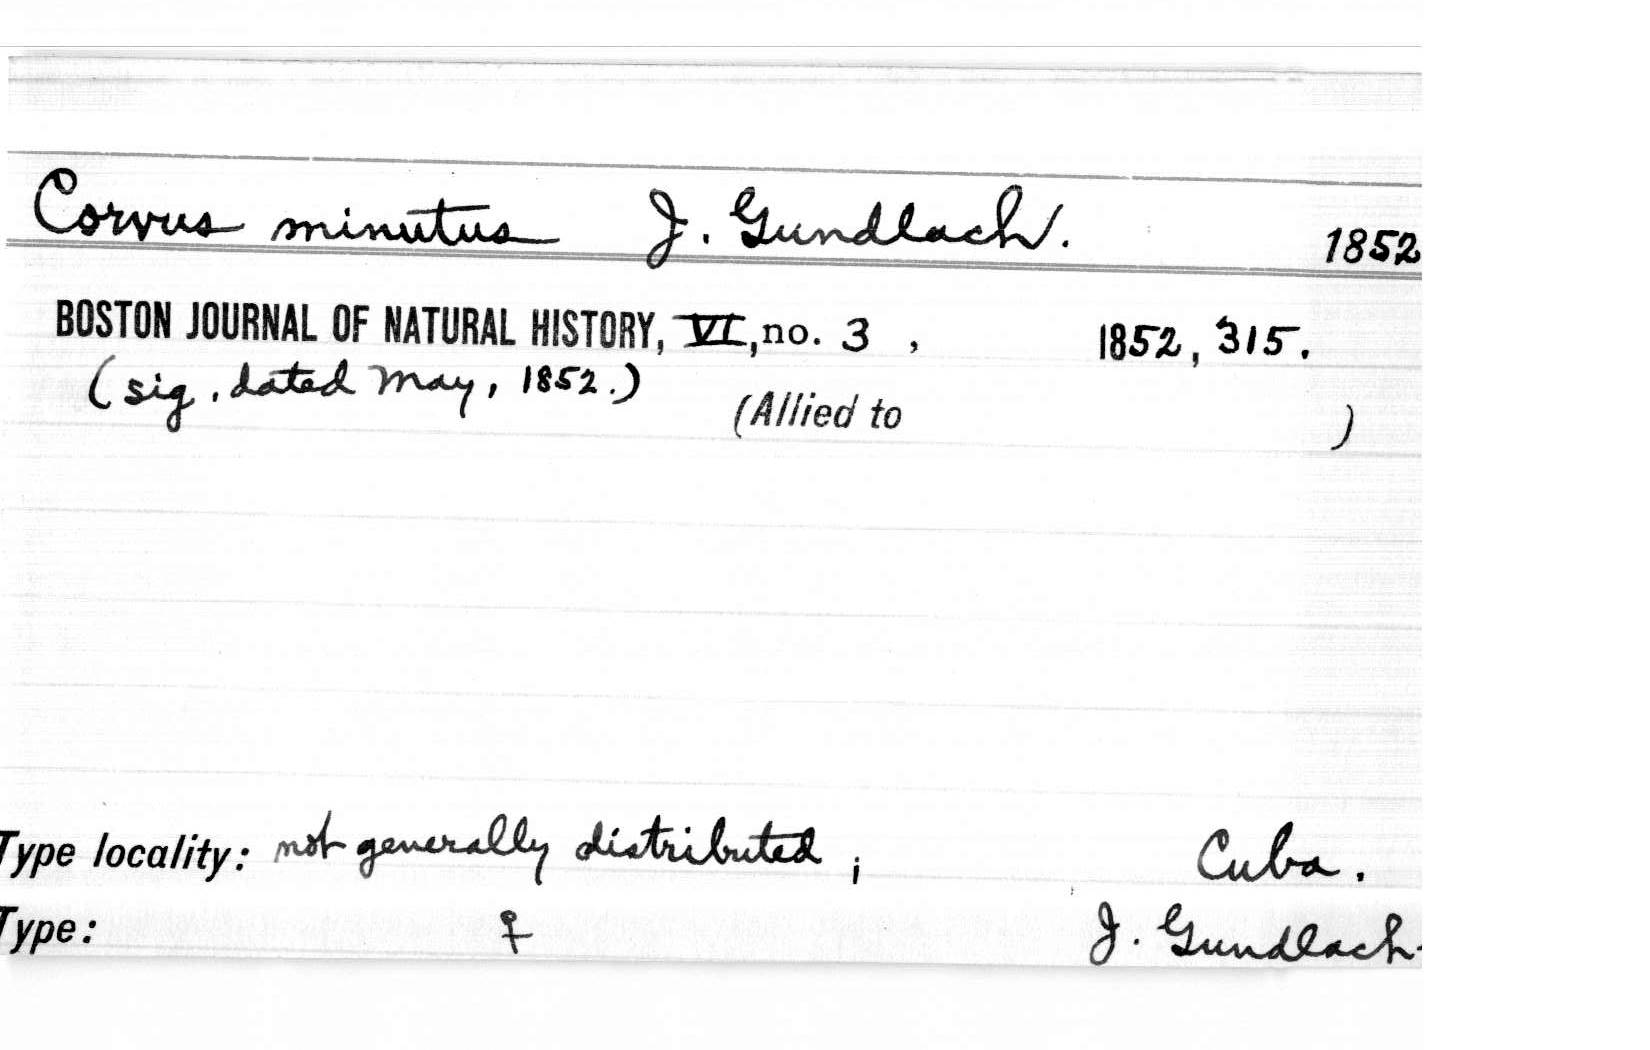 Corvus minutus J. Gundlach. 1852
BOSTON JOURNAL OF NATURAL HISTORY, VI, no. 3 , 1852, 315.
(sig. dated May, 1852.)
(Allied to )
Type locality: not generally distributed , Cuba.
Type: ♀ J. Gundlach